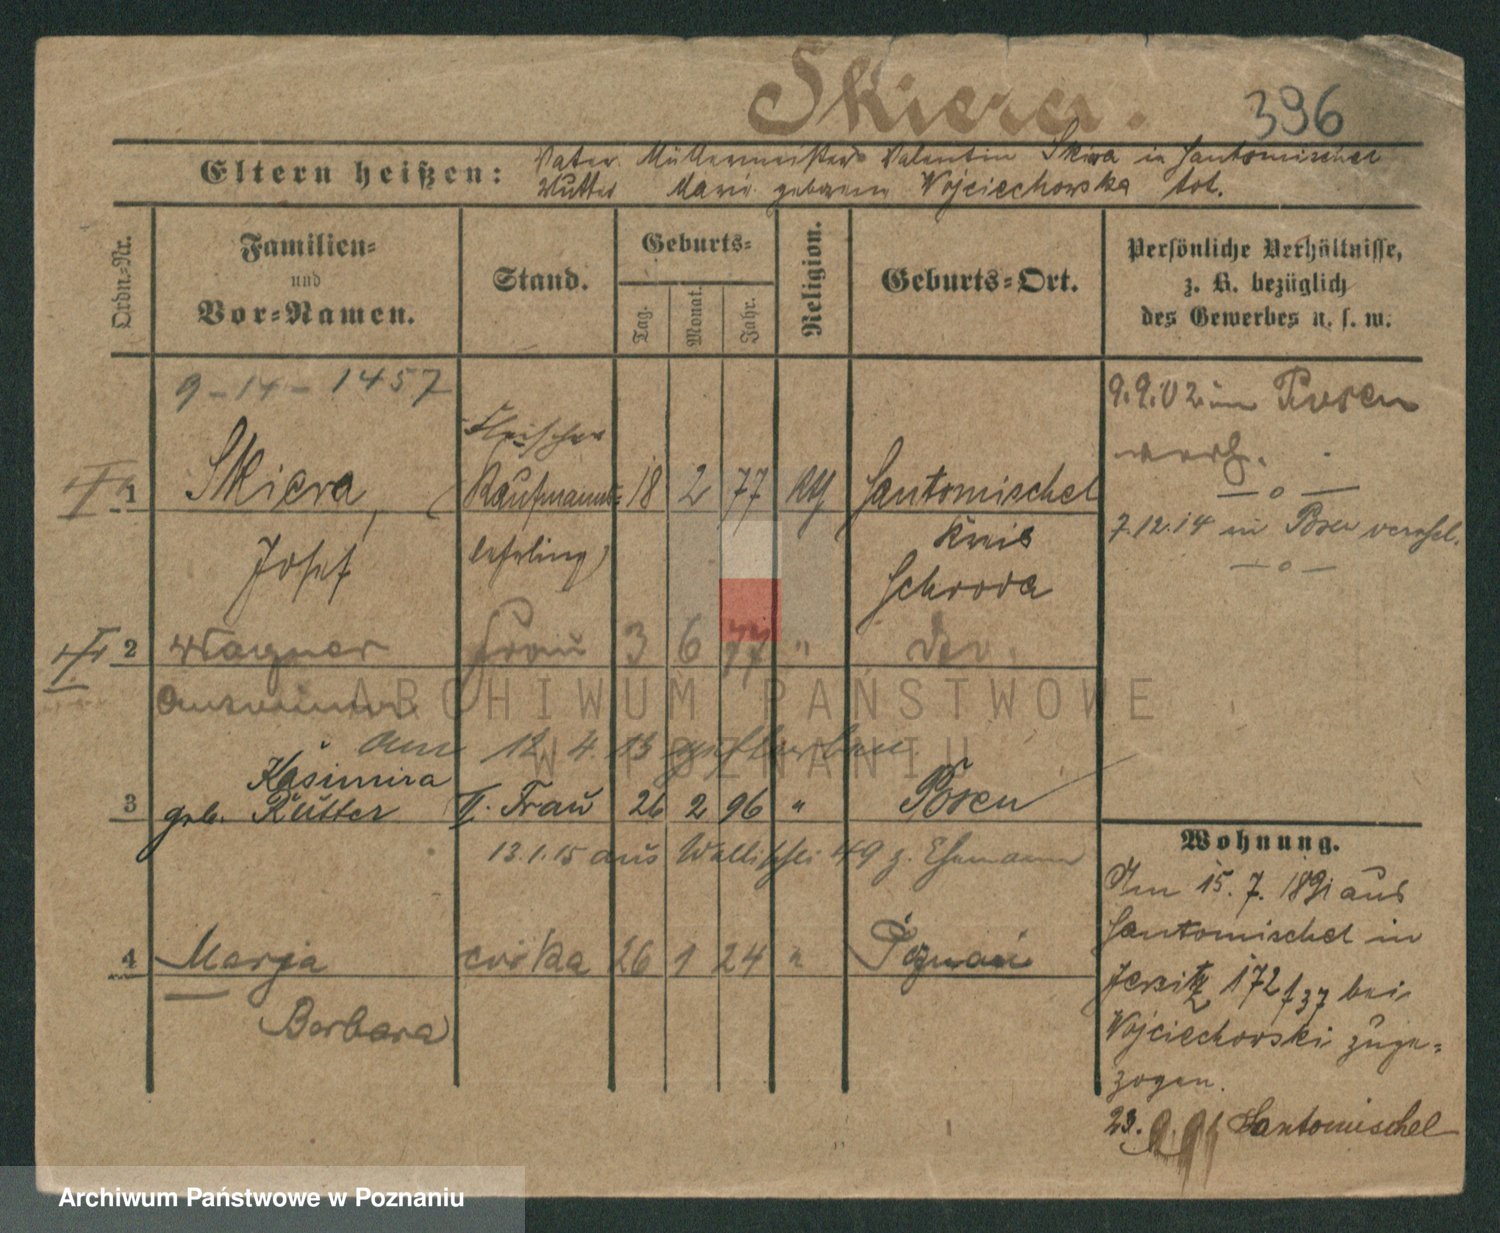 Skiera.
396
Eltern heißen:
Vater Müllermeister Valentin Skiera in Santomischel
Mutter Marie geborene Wojciechowska tot.
Ordn.-Nr.
Familien-
und
Vor-Namen.
Stand.
Geburts-
Tag.
Monat.
Jahr.
Religion.
Geburts-Ort.
Persönliche Verhältnisse,
z. B. bezüglich
des Gewerbes u. s. w.
9-14-1457
Fleischer
1 Skiera, (Kaufmanns- 18 2 77 Santomischel
Josef lehrling) Kreis
Schroda
9.9.02 in Posen
verh.
7.12.14 in Posen verehel.
2 Wagner Frau 3 6 77 "
am 12.4.13 gestorben
Kasimira
3 geb. Rütter II. Frau 26 2 96 " Posen
13.1.15 aus Wallischei 49 z. Ehemann
4 Marja córka 26 1 24 " Poznań
Barbara
Wohnung.
Am 15.7.1891 aus
Santomischel in
Jersitz 172/37 bei
Wojciechowski zuge-
zogen.
23. Santomischel
ARCHIWUM PAŃSTWOWE
W POZNANIU
Archiwum Państwowe w Poznaniu